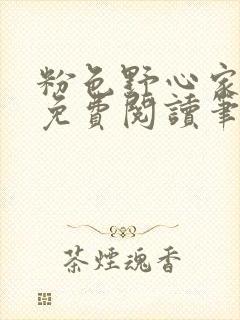 粉色野心家
免費閱讀筆
茶煙魂香